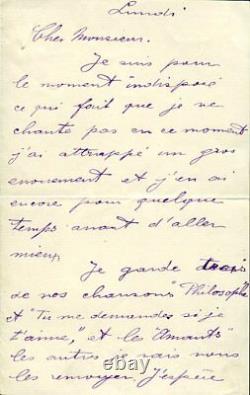 Lundi
Cher Monsieur.
Je suis pour
le moment indisposé
ce qui fait que je ne
chante pas en ce moment
j'ai attrappé un gros
enrouement et j'en ai
encore pour quelque
temps avant d'aller
mieux.
Je garde trois
de nos chansons "Philosophie
et "Tu me demandes si je
t'aime," et les "Amants"
les autres je vais vous
les renvoyer. J'espère
© ebay